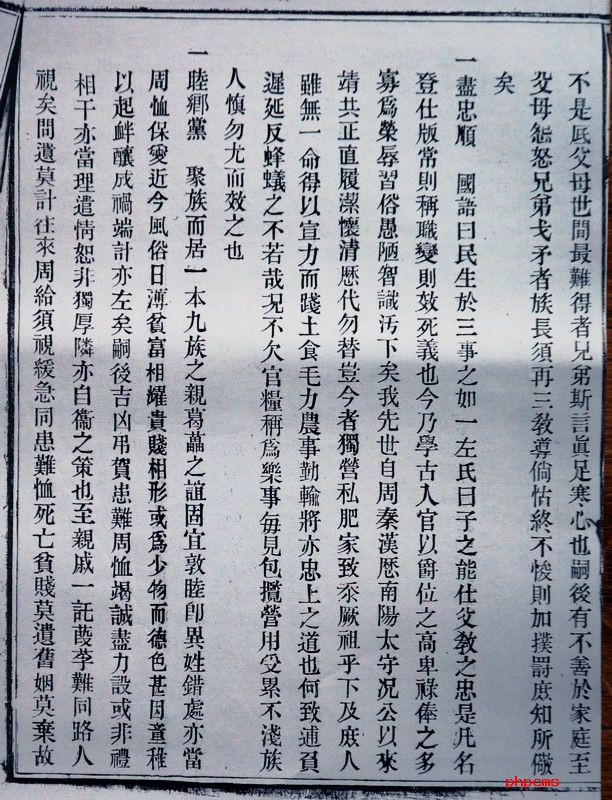 不是底父母世間最難得者兄弟斯言眞足寒心也嗣後有不善於家庭至
父母怨怒兄弟戈矛者族長須再三敎導倘怙終不悛則加撲罰庶知所儆
矣
一盡忠順 國語曰民生於三事之如一左氏曰子之能仕父敎之忠是凡名
登仕版常則稱職變則效死義也今乃學古入官以爵位之高卑祿俸之多
寡爲榮辱習俗愚陋智識汚下矣我先世自周秦漢歷南陽太守况公以來
靖共正直履潔懷清歷代勿替豈今者獨營私肥家致忝厥祖乎下及庶人
雖無一命得以宣力而踐土食毛力農事勤輸將亦忠上之道也何致逋負
遲延反蜂蟻之不若哉况不欠官糧稱爲樂事每見包攬營用受累不淺族
人愼勿尤而效之也
一睦鄕黨 聚族而居一本九族之親葛藟之誼固宜敦睦卽異姓錯處亦當
周恤保愛近今風俗日薄貧富相耀貴賤相形或爲少物而德色甚因童稚
以起衅釀成禍端計亦左矣嗣後吉凶弔賀患難周恤竭誠盡力設或非禮
相干亦當理遣情恕非獨厚隣亦自衞之策也至親戚一託葭莩難同路人
視矣問遺莫計往來周給須視緩急同患難恤死亡貧賤莫遺舊姻莫棄故
phpcms